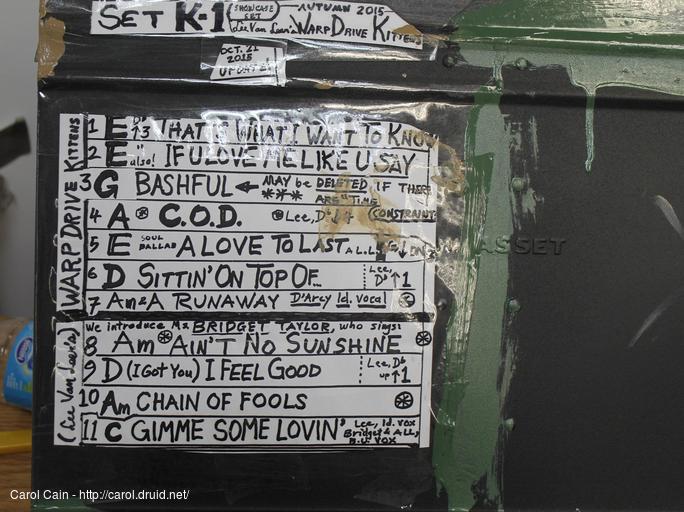 SET K-1
SHOWCASE SET
AUTUMN 2015
Lee Van Leer's WARP DRIVE KITTENS
OCT. 21
2015
UPDATE!
WARP DRIVE KITTENS
1 E Db ↑3 THAT IS WHAT I WANT TO KNOW
2 E also! IF U LOVE ME LIKE U SAY
3 G BASHFUL ← MAY be DELETED IF THERE
*** ARE "TIME
4 A C.O.D. Lee, Db CONSTRAINTS
5 E SOUL BALLAD A LOVE TO LAST
6 D SITTIN' ON TOP OF... Lee, Db ↑1
7 Am & A RUNAWAY D'Arcy ld. vocal
(Lee Van Leer's)
we introduce Ms. BRIDGET TAYLOR, who sings:
8 Am AIN'T NO SUNSHINE
9 D (I Got You) I FEEL GOOD Lee, Db up ↑1
10 Am CHAIN OF FOOLS
11 C GIMME SOME LOVIN' Lee, ld. vox
Bridget & ALL,
B.U. VOX
ASSET
Carol Cain - http://carol.druid.net/